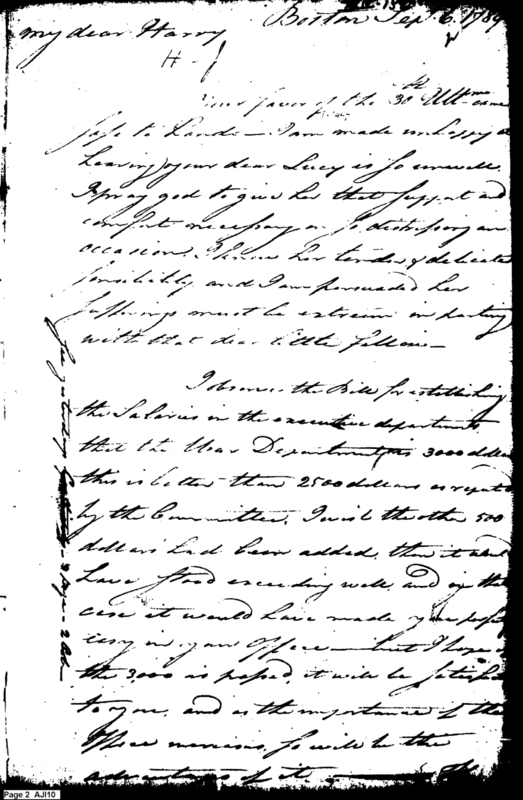 Boston Sep. 6. 1789
My dear Harry
H-
Your favor of the 30th Ultmo came
safe to hand – I am made unhappy at
hearing your dear Lucy is so unwell.
I pray god to give her that support and
comfort necessary on so distressing an
occasion. I know her tender & delicate
sensibility and I am persuaded her
sufferings must be extreem in parting
with that dear little fellow –
I observe the Bill for establishing
the Salaries in the executive departments
that the War Department is 3000 dollars
this is better than 2500 dollars as reported
by the Committee. I wish the other 500
dollars had been added, then it would
have stood exceeding well, and in that
case it would have made you perfectly
easy in your Office – but I hope if
the 3,000 is passed, it will be satisfactory
to you, and as the importance of the
Office increases, so will be the
advantages of it.
Page 2 AJI10